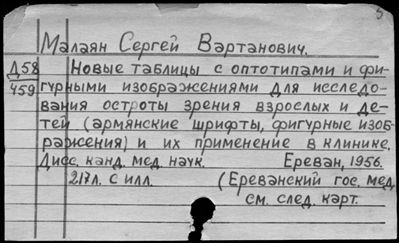 5
Малаян Сергей Вартанович.
Д58 Новые таблицы с оптотипами и фи-
459 гурными изображениями для исследо-
вания остроты зрения взрослых и де-
тей (армянские шрифты, фигурные изоб-
ражения) и их применение в клинике.
Дисс. канд. мед. наук. Ереван, 1956.
217л. с илл. (Ереванский гос. мед
см. след. карт.